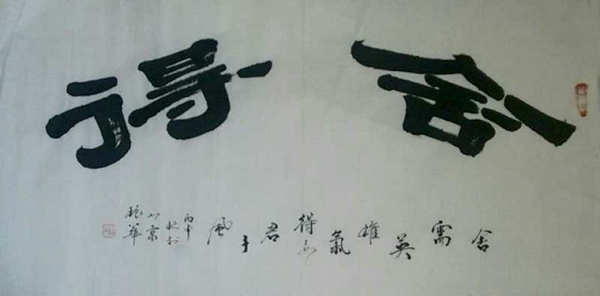 舍得
舍需英雄氣得君子風
丙申
秋於
北京
振華